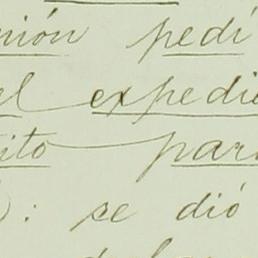 nión pedí
el expedie
ito par
: se dió